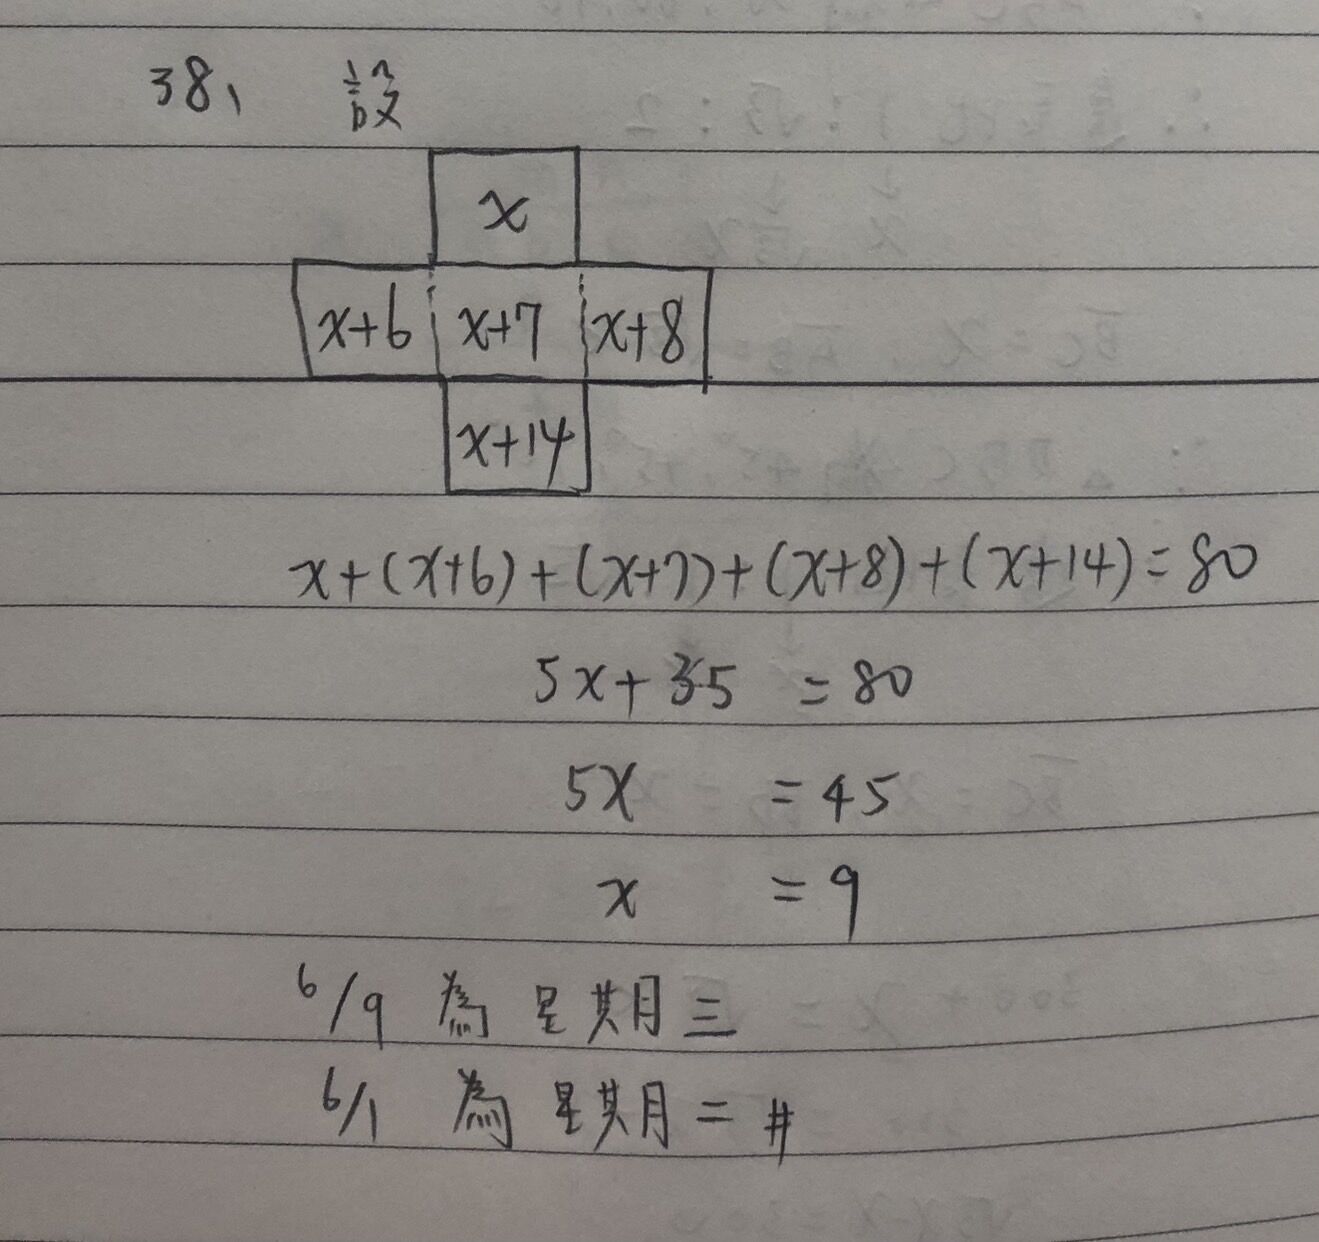 38、 設
x
x+6 x+7 x+8
x+14
x+(x+6)+(x+7)+(x+8)+(x+14)=80
5x+35 =80
5x =45
x =9
6/9 為星期三
6/1 為星期二 #